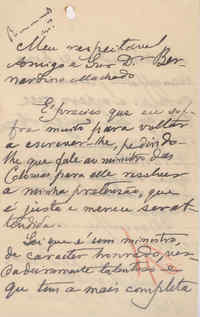 Meu respeitavel
Amigo e Snr. Dr. Ber-
nardino Machado
É preciso que eu sof-
fra muito para voltar
a escrever-lhe, pedindo-
lhe que fale ao ministro das
Colonias para elle resolver
a minha pretensão, que
é justa e merece ser at-
tendida.
Sei que é sem ministro,
de caracter honrado,
talentoso e
que tem a mais completa